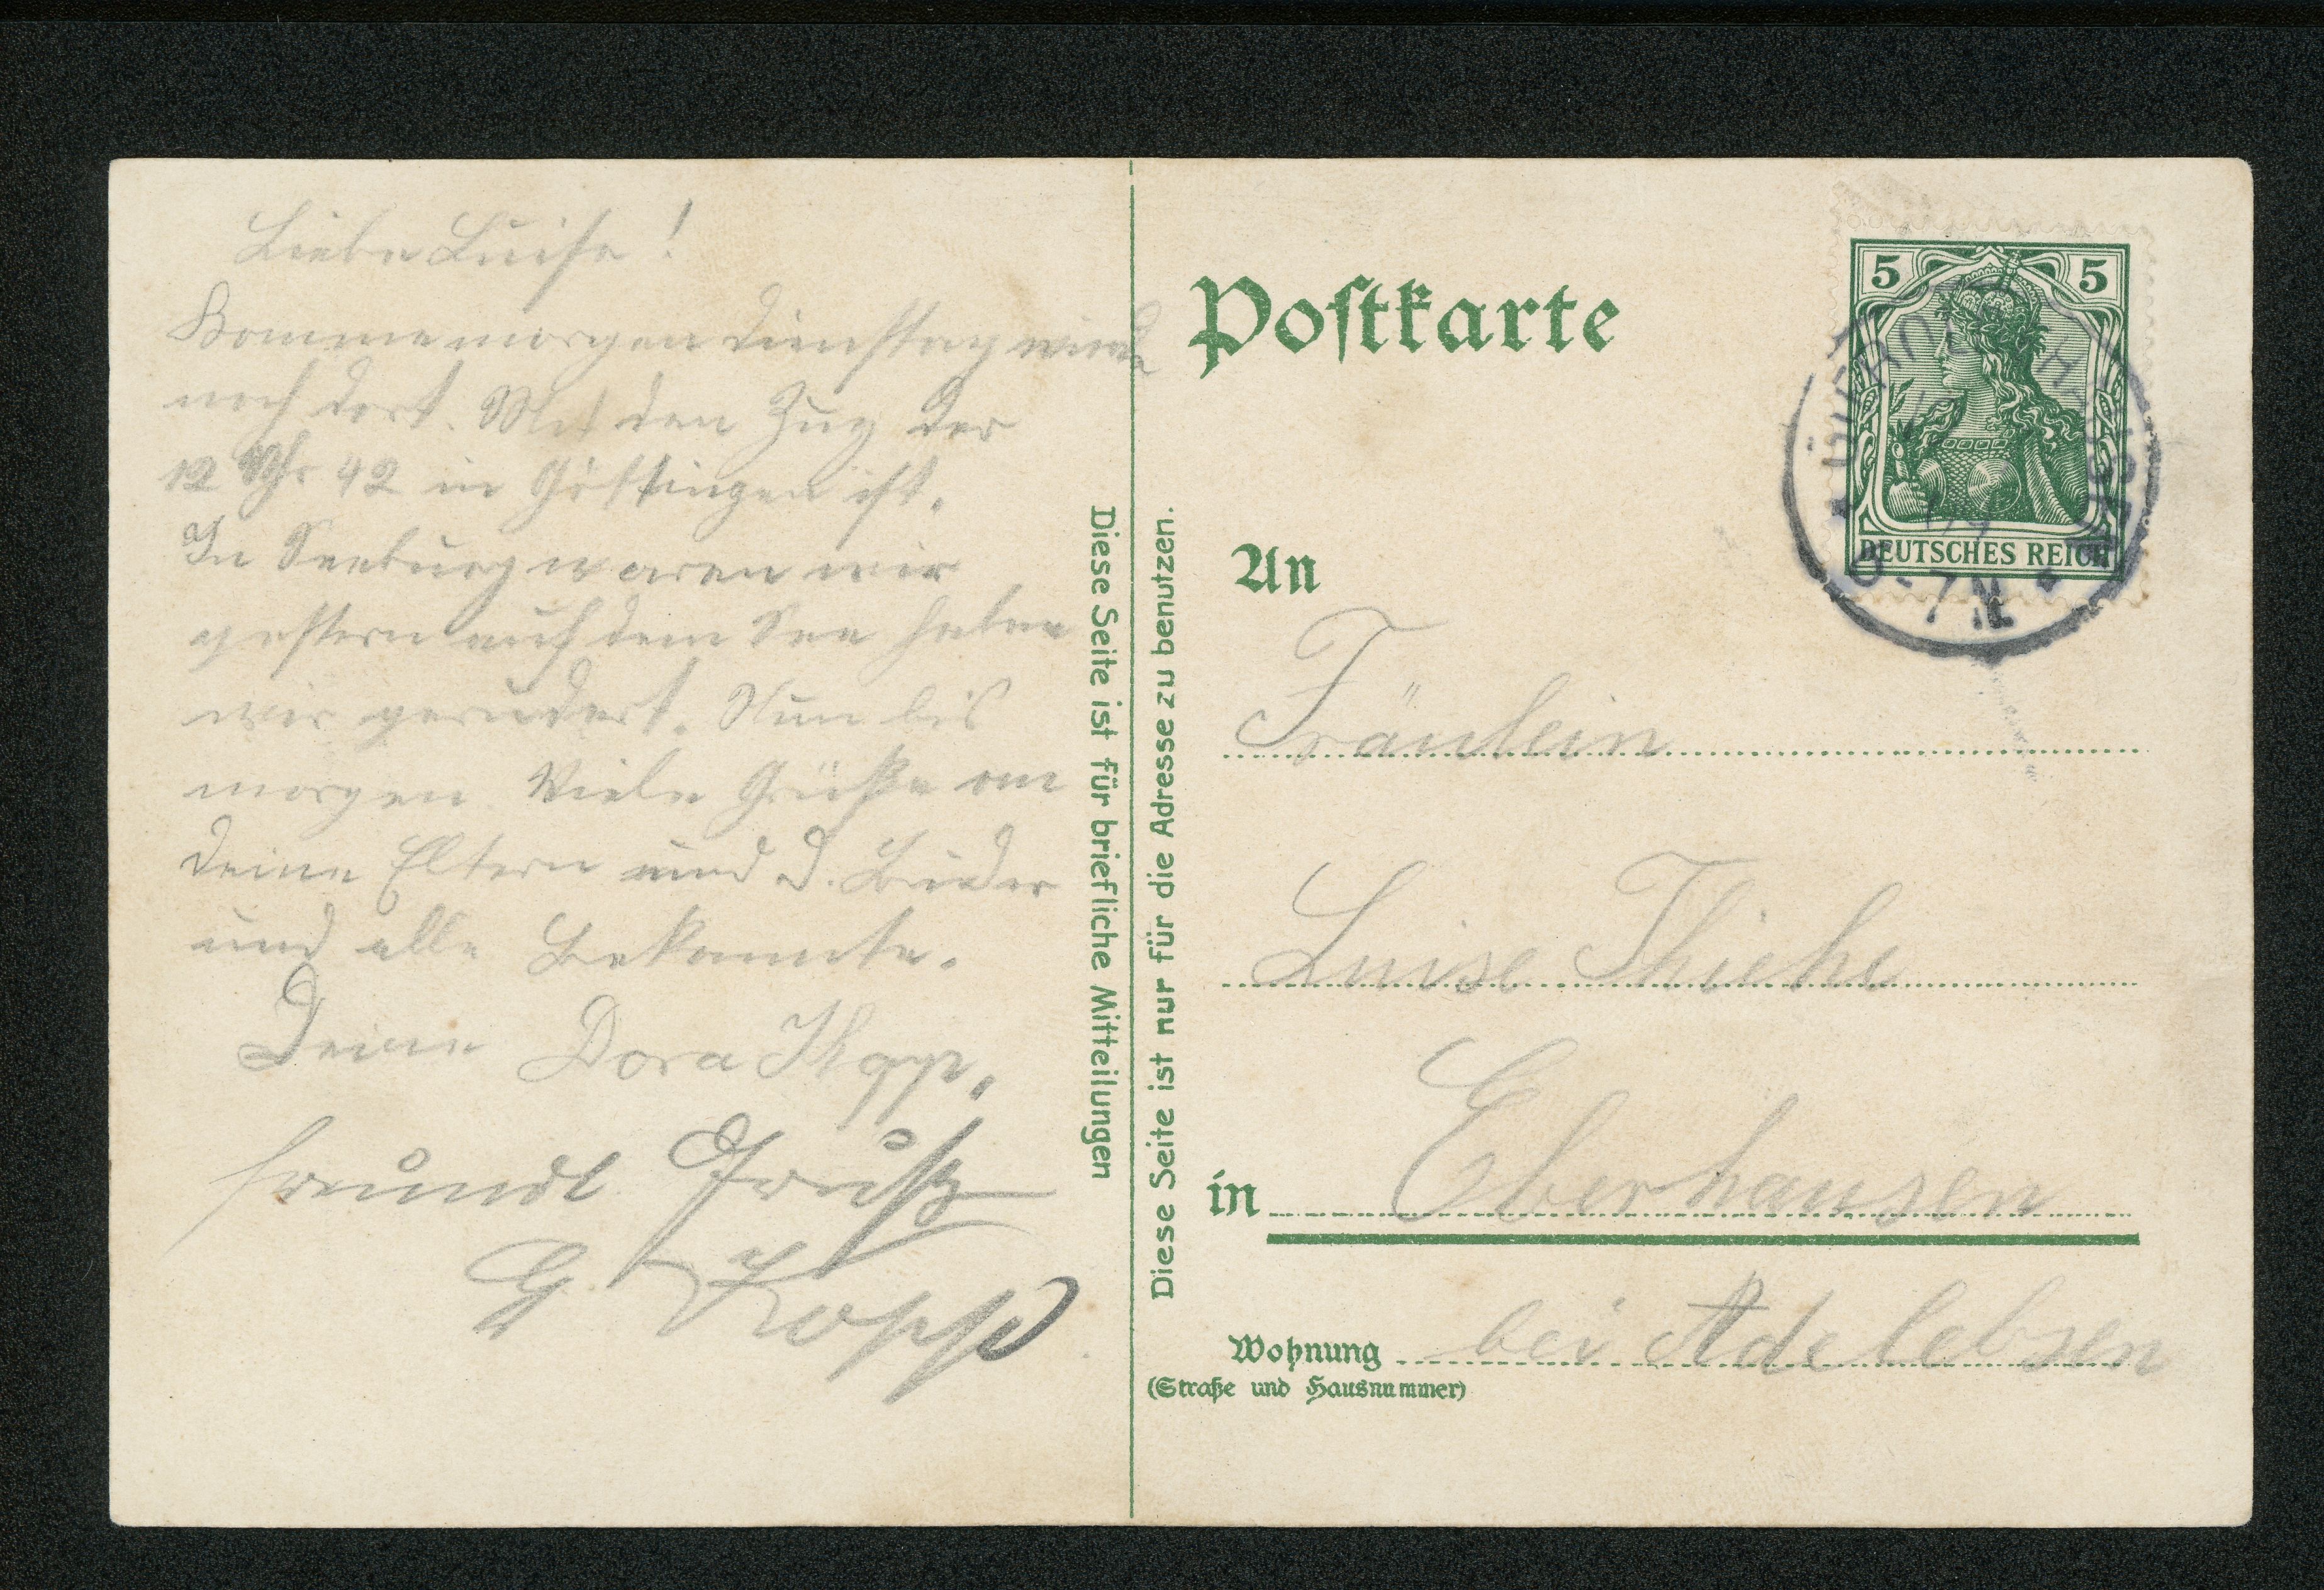 Liebe Luise!
Komme morgen Dienstag wieder
nach dort. Mit den Zug der
12 Uhr 42 in Göttingen ist.
In Seeburg waren wir
gestern auf dem See haben
wir gerudert. Nun bis
morgen. Viele Grüße an
deine Eltern und d. Brüder
und alle Bekannte.
Deine Dora Kopp.
freundl. Gruß
G. Kopp
Diese Seite ist für briefliche Mitteilungen
Diese Seite ist nur für die Adresse zu benutzen.
Postkarte
5 5
DEUTSCHES REICH
An
Fräulein
Luise Thiehe
in Eberhausen
Wohnung bei Adelebsen
(Straße und Hausnummer)